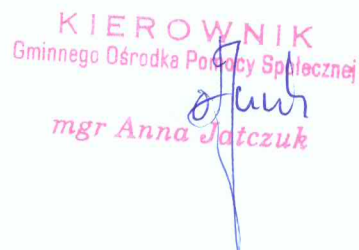 KIEROWNIK
Gminnego Ośrodka Pomocy Społecznej
mgr Anna Jatczuk